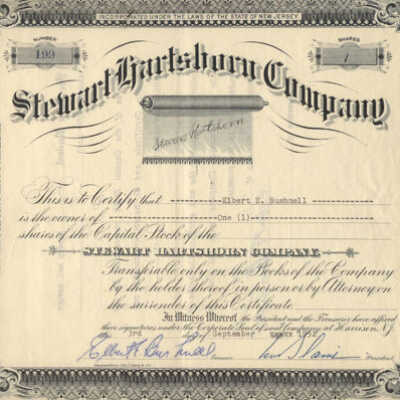 INCORPORATED UNDER THE LAWS OF THE STATE OF NEW JERSEY
NUMBER
199
SHARES
1
Stewart Hartshorn Company
Stewart Hartshorn
This is to Certify that Elbert E. Bushnell
is the owner of One (1)
shares of the Capital Stock of the
STEWART HARTSHORN COMPANY
Transferable only on the Books of the Company
by the holder thereof in person or by Attorney on
the surrender of this Certificate
In Witness Whereof, the President and the Treasurer have affixed
their signatures under the Corporate Seal of said Company at Harrison, N.J.
3rd day of September
President